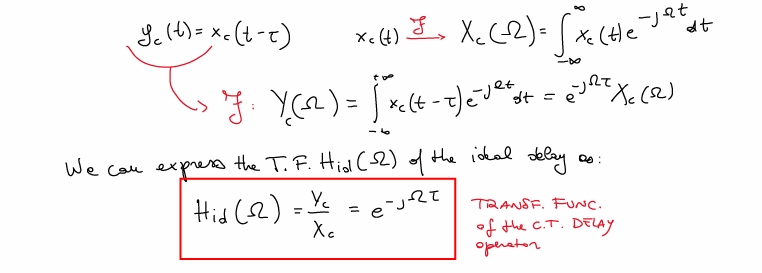 y_c(t) = x_c(t-τ)    x_c(t) —ℱ→ X_c(Ω) = ∫_{-∞}^{∞} x_c(t) e^{-jΩt} dt
ℱ: Y_c(Ω) = ∫_{-∞}^{+∞} x_c(t-τ) e^{-jΩt} dt = e^{-jΩτ} X_c(Ω)
We can express the T.F. H_id(Ω) of the ideal delay as:
H_id(Ω) = Y_c/X_c = e^{-jΩτ}
TRANSF. FUNC.
of the C.T. DELAY
operator